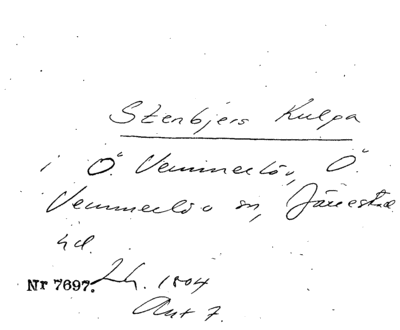 Stenbjers Kulpa
i Ö. Vemmerlöv, Ö.
Vemmerlövs sn, Järrestads
hd.
Nr 7697. Lh. 1804
Aut 7